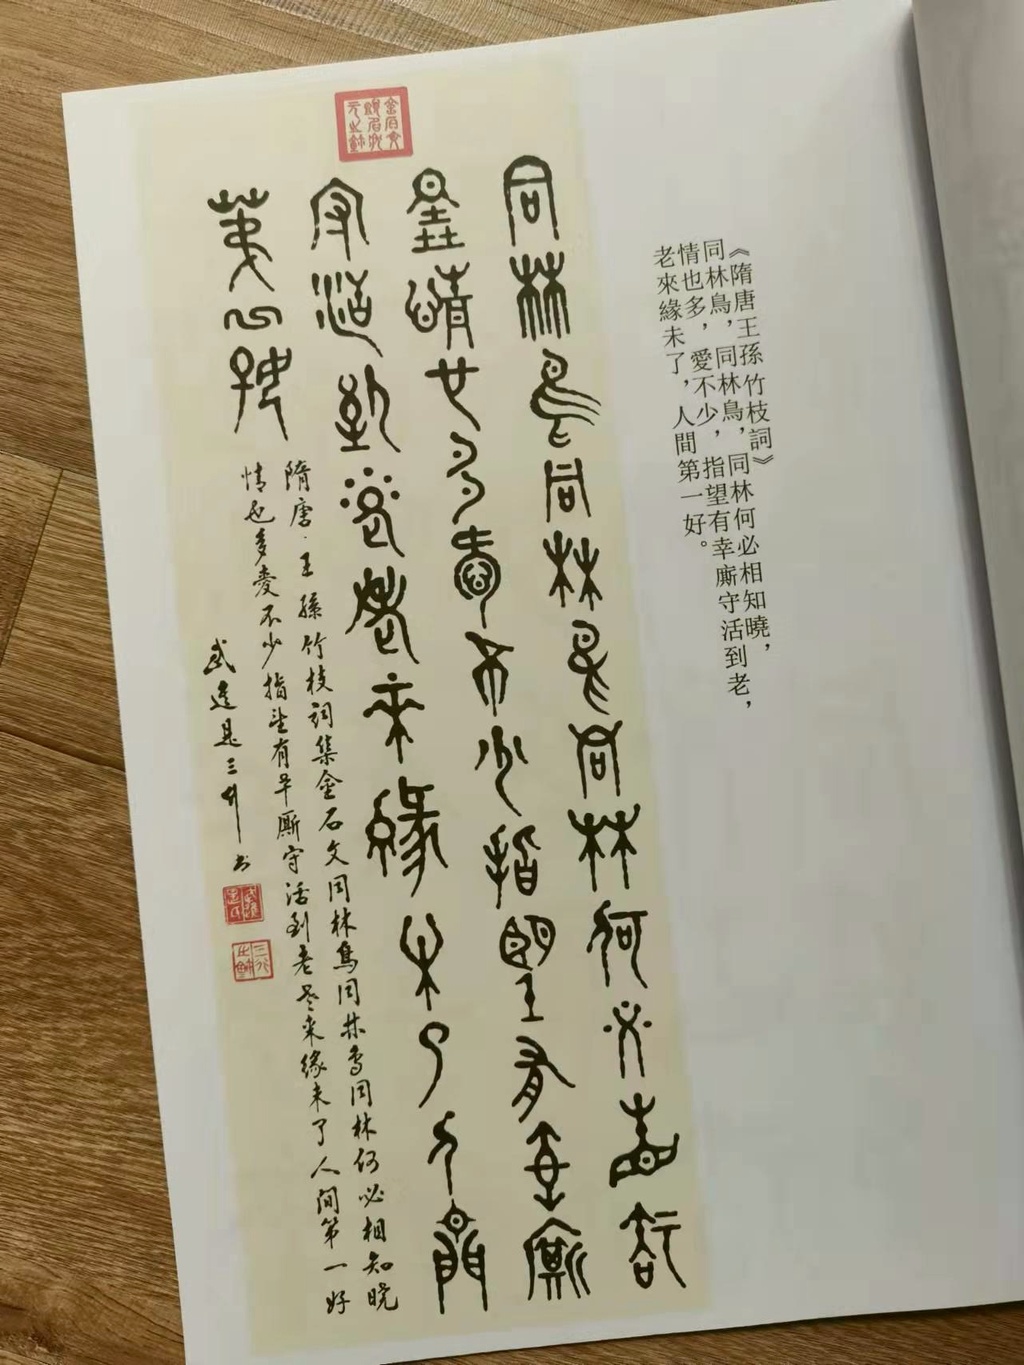 《隋唐王孫 竹枝詞》
同林鳥，同林鳥，同林何必相知曉，
情也多，愛不少，指望有幸廝守活到老，
老來緣未了，人間第一好。
同林鳥同林鳥同林何必相知
曉情也多愛不少指望有幸廝
守活到老老來緣未了人間
第一好
隋唐·王孫竹枝詞集金石文同林鳥同林鳥同林何必相知晓
情也多愛不少指望有幸廝守活到老老来緣未了人间第一好